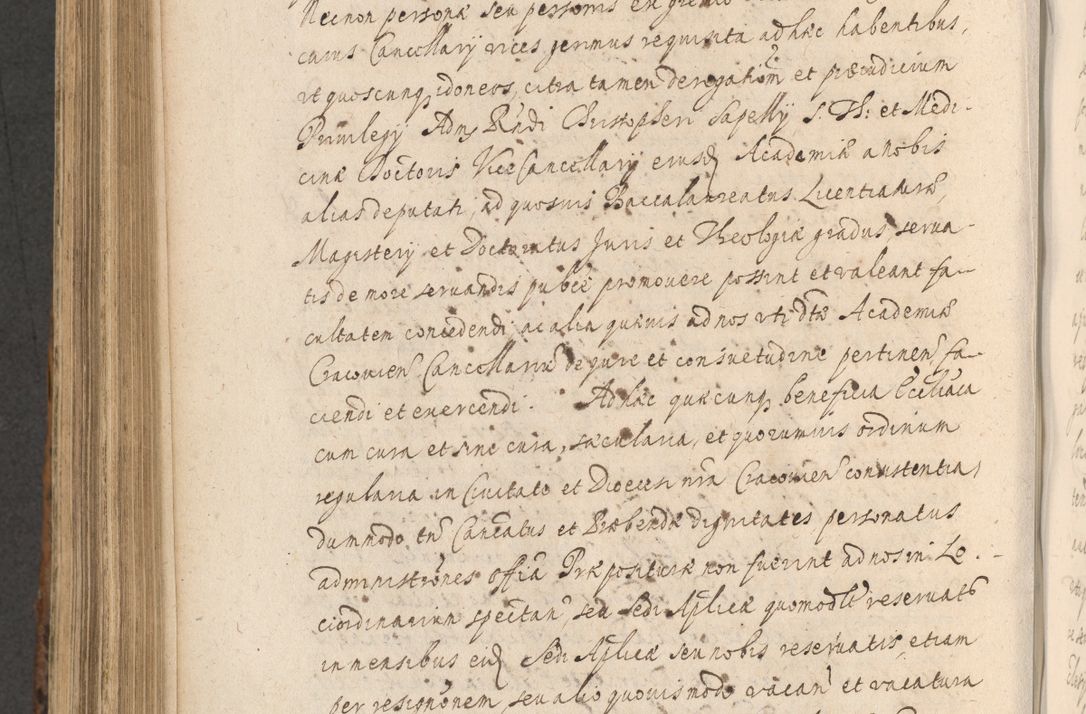 Necnon personæ seu personis ex gremio
carus Cancellarij vices gerimus requisita ad hæc habentibus,
vt quoscunq idoneos, citra tamen derogation̄m et præiudicium
Priuilegij Adm Rndi Christopheri Sapelly S. Th: et Medi-
cinæ Doctoris ViceCancellarij eiusd Academiæ a nobis
alias deputati, ad quosuis Baccalaureatus Licentiaturæ
Magisterij et Doctoratus Juris et Theologiæ gradus, serua-
tis de more seruandis publce promouere possint et valeant fa-
cultatem concedendi ac alia quæuis ad nos vti dctæ Academiæ
Cracouien Cancellariū de jure et consuetudine pertinen fa-
ciendi et exercendi. Ad hæc quæcunq beneficia Eccliaca
cum cura et sine cura, sæcularia, et quorumuis ordinum
regularia in Ciuitate et Dioecesi nrā Cracouien consistentia,
dummodo tn Canoatus et Præbendæ dignitates personatus
administrōnes offia Præposituræ non fuerint ad nos in Lo-
co ordinarium spectan, seu Sedi Aplicæ quomodolt reseruatæ
in mensibus eid Sedi Aplicæ seu nobis reseruatis, etiam
per resignōnem, seu alio quouis modo vacan et vacatura